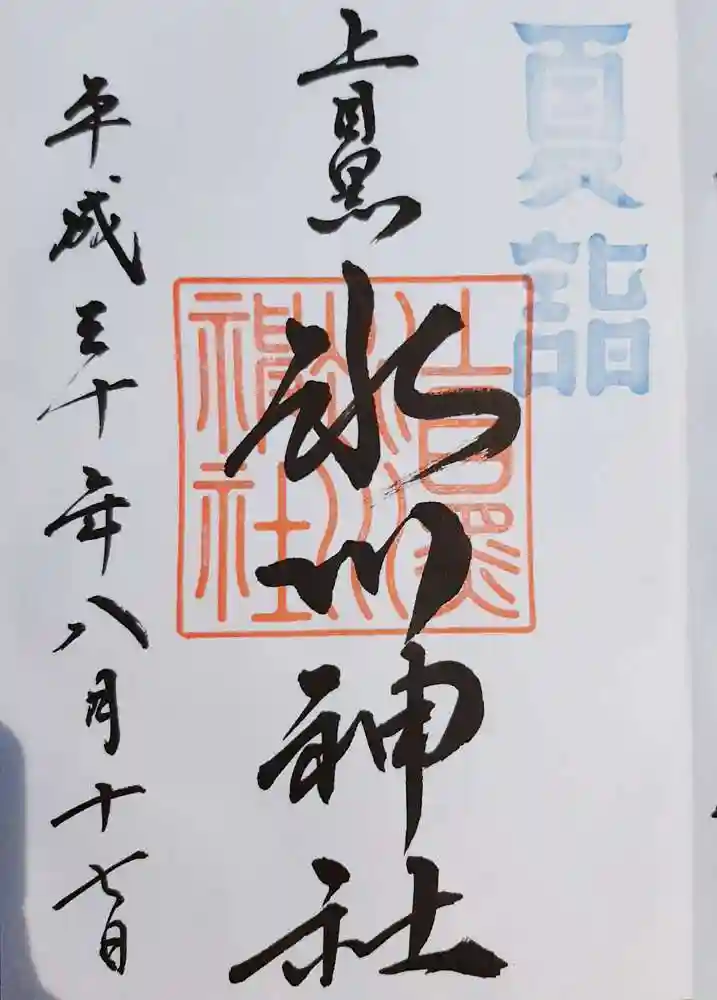 夏詣
上目黒
氷川神社
上目黒
氷川
神社
平成三十年八月十七日